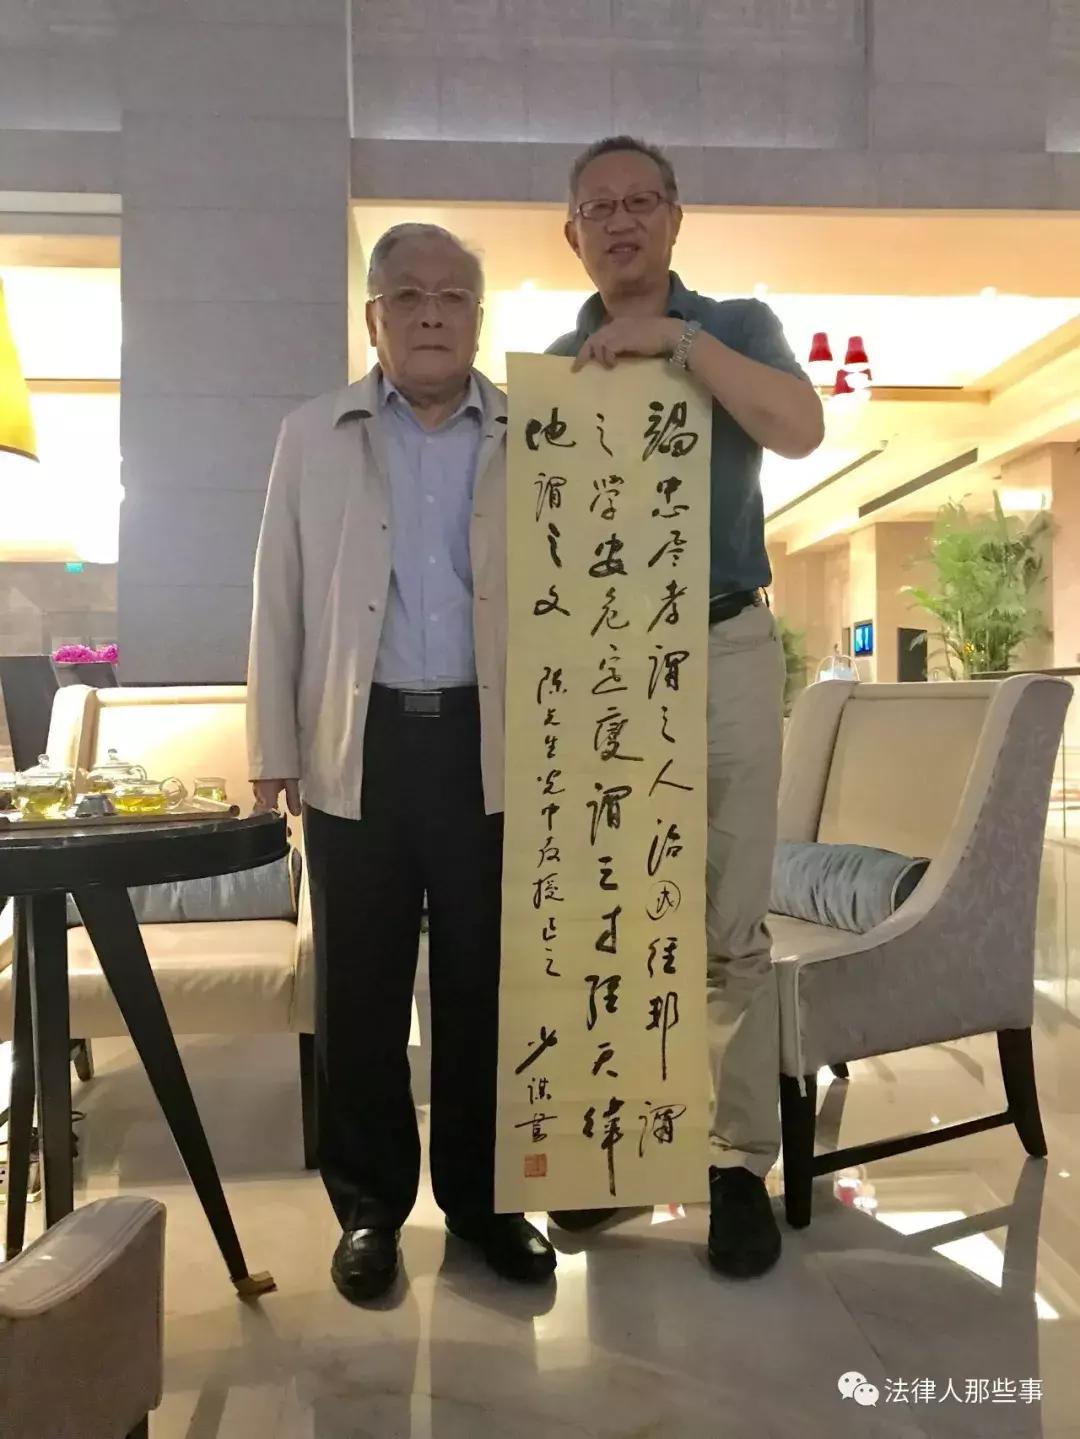 竭忠尽孝谓之人治囻经邦谓
之学安危定变谓之才经天纬
地谓之文
陈先生光中教授正之
少谋书
法律人那些事